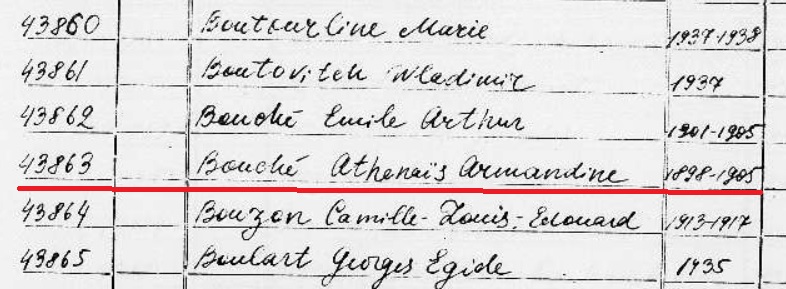 43860 Boutourline Marie 1937-1938
43861 Boutovitch Wladimir 1937
43862 Bouché Emile Arthur 1901-1905
43863 Bouché Athenaïs Armandine 1898-1905
43864 Bouzon Camille-Louis-Edouard 1913-1917
43865 Boulart Georges Egide 1935